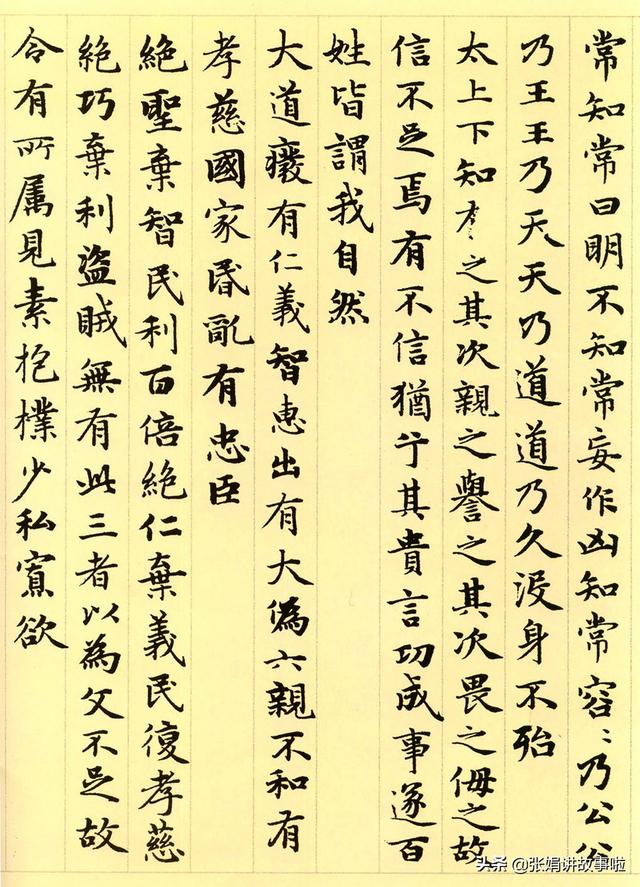 常知常曰明不知常妄作凶知常容〻乃公公
乃王王乃天天乃道道乃久没身不殆
太上下知有之其次親之譽之其次畏之侮之故
信不足焉有不信猶兮其貴言功成事遂百
姓皆謂我自然
大道癈有仁義智惠出有大偽六親不和有
孝慈國家昬亂有忠臣
絶聖棄智民利百倍絶仁棄義民復孝慈
絶巧棄利盜賊無有此三者以為文不足故
令有所属見素抱樸少私寡欲
头条 @张娟讲故事啦